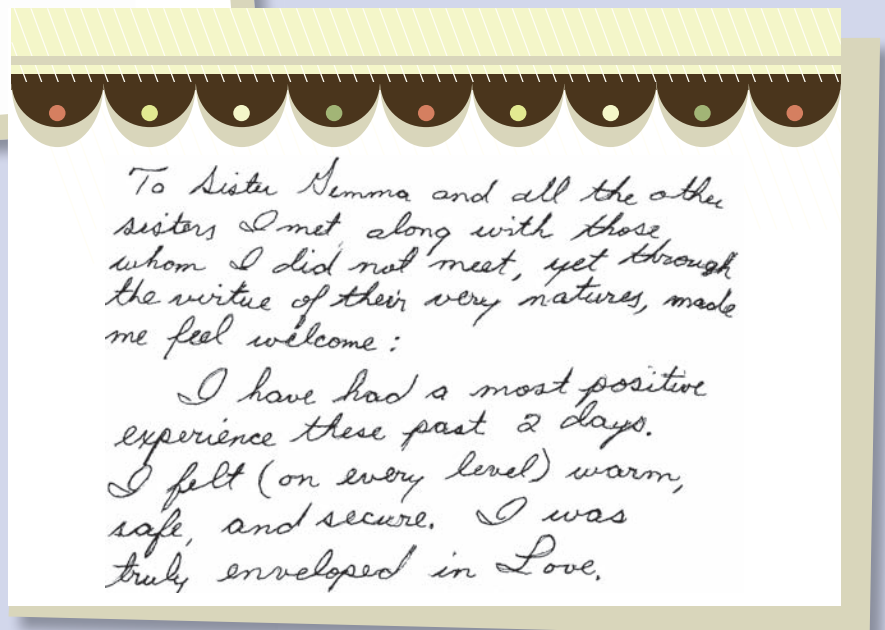 To Sister Gemma and all the other
sisters I met along with those
whom I did not meet, yet through
the virtue of their very natures, made
me feel welcome:
I have had a most positive
experience these past 2 days.
I felt (on every level) warm,
safe, and secure. I was
truly enveloped in Love.